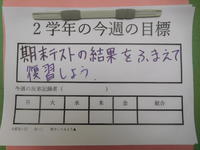 2学年の今週の目標
期末テストの結果をふまえて
復習しよう。
今週の反省記録者（　　　　　）
月 火 水 木 金 総合